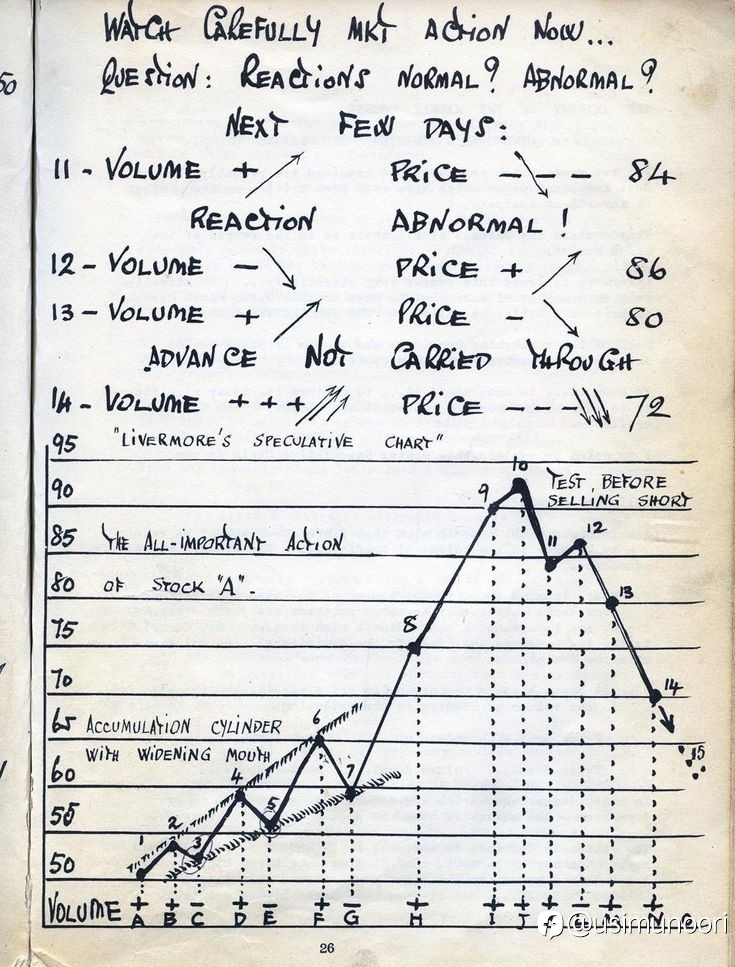 WATCH CAREFULLY MKT ACTION NOW...
QUESTION: REACTIONS NORMAL? ABNORMAL?
NEXT FEW DAYS:
11 - VOLUME + PRICE - - - 84
REACTION ABNORMAL!
12 - VOLUME - PRICE + 86
13 - VOLUME + PRICE - 80
ADVANCE NOT CARRIED THROUGH
14 - VOLUME + + + PRICE - - - 72
95 "LIVERMORE'S SPECULATIVE CHART"
10
90 9 TEST BEFORE
SELLING SHORT
85 THE ALL-IMPORTANT ACTION 11 12
80 OF STOCK "A". 13
75 8
70 14
65 ACCUMULATION CYLINDER 6 15
WITH WIDENING MOUTH
60 4 7
55 2 5
50 1 3
VOLUME + + - + - + - + + + + - + +
A B C D E F G H I J N
26
@usimunoori